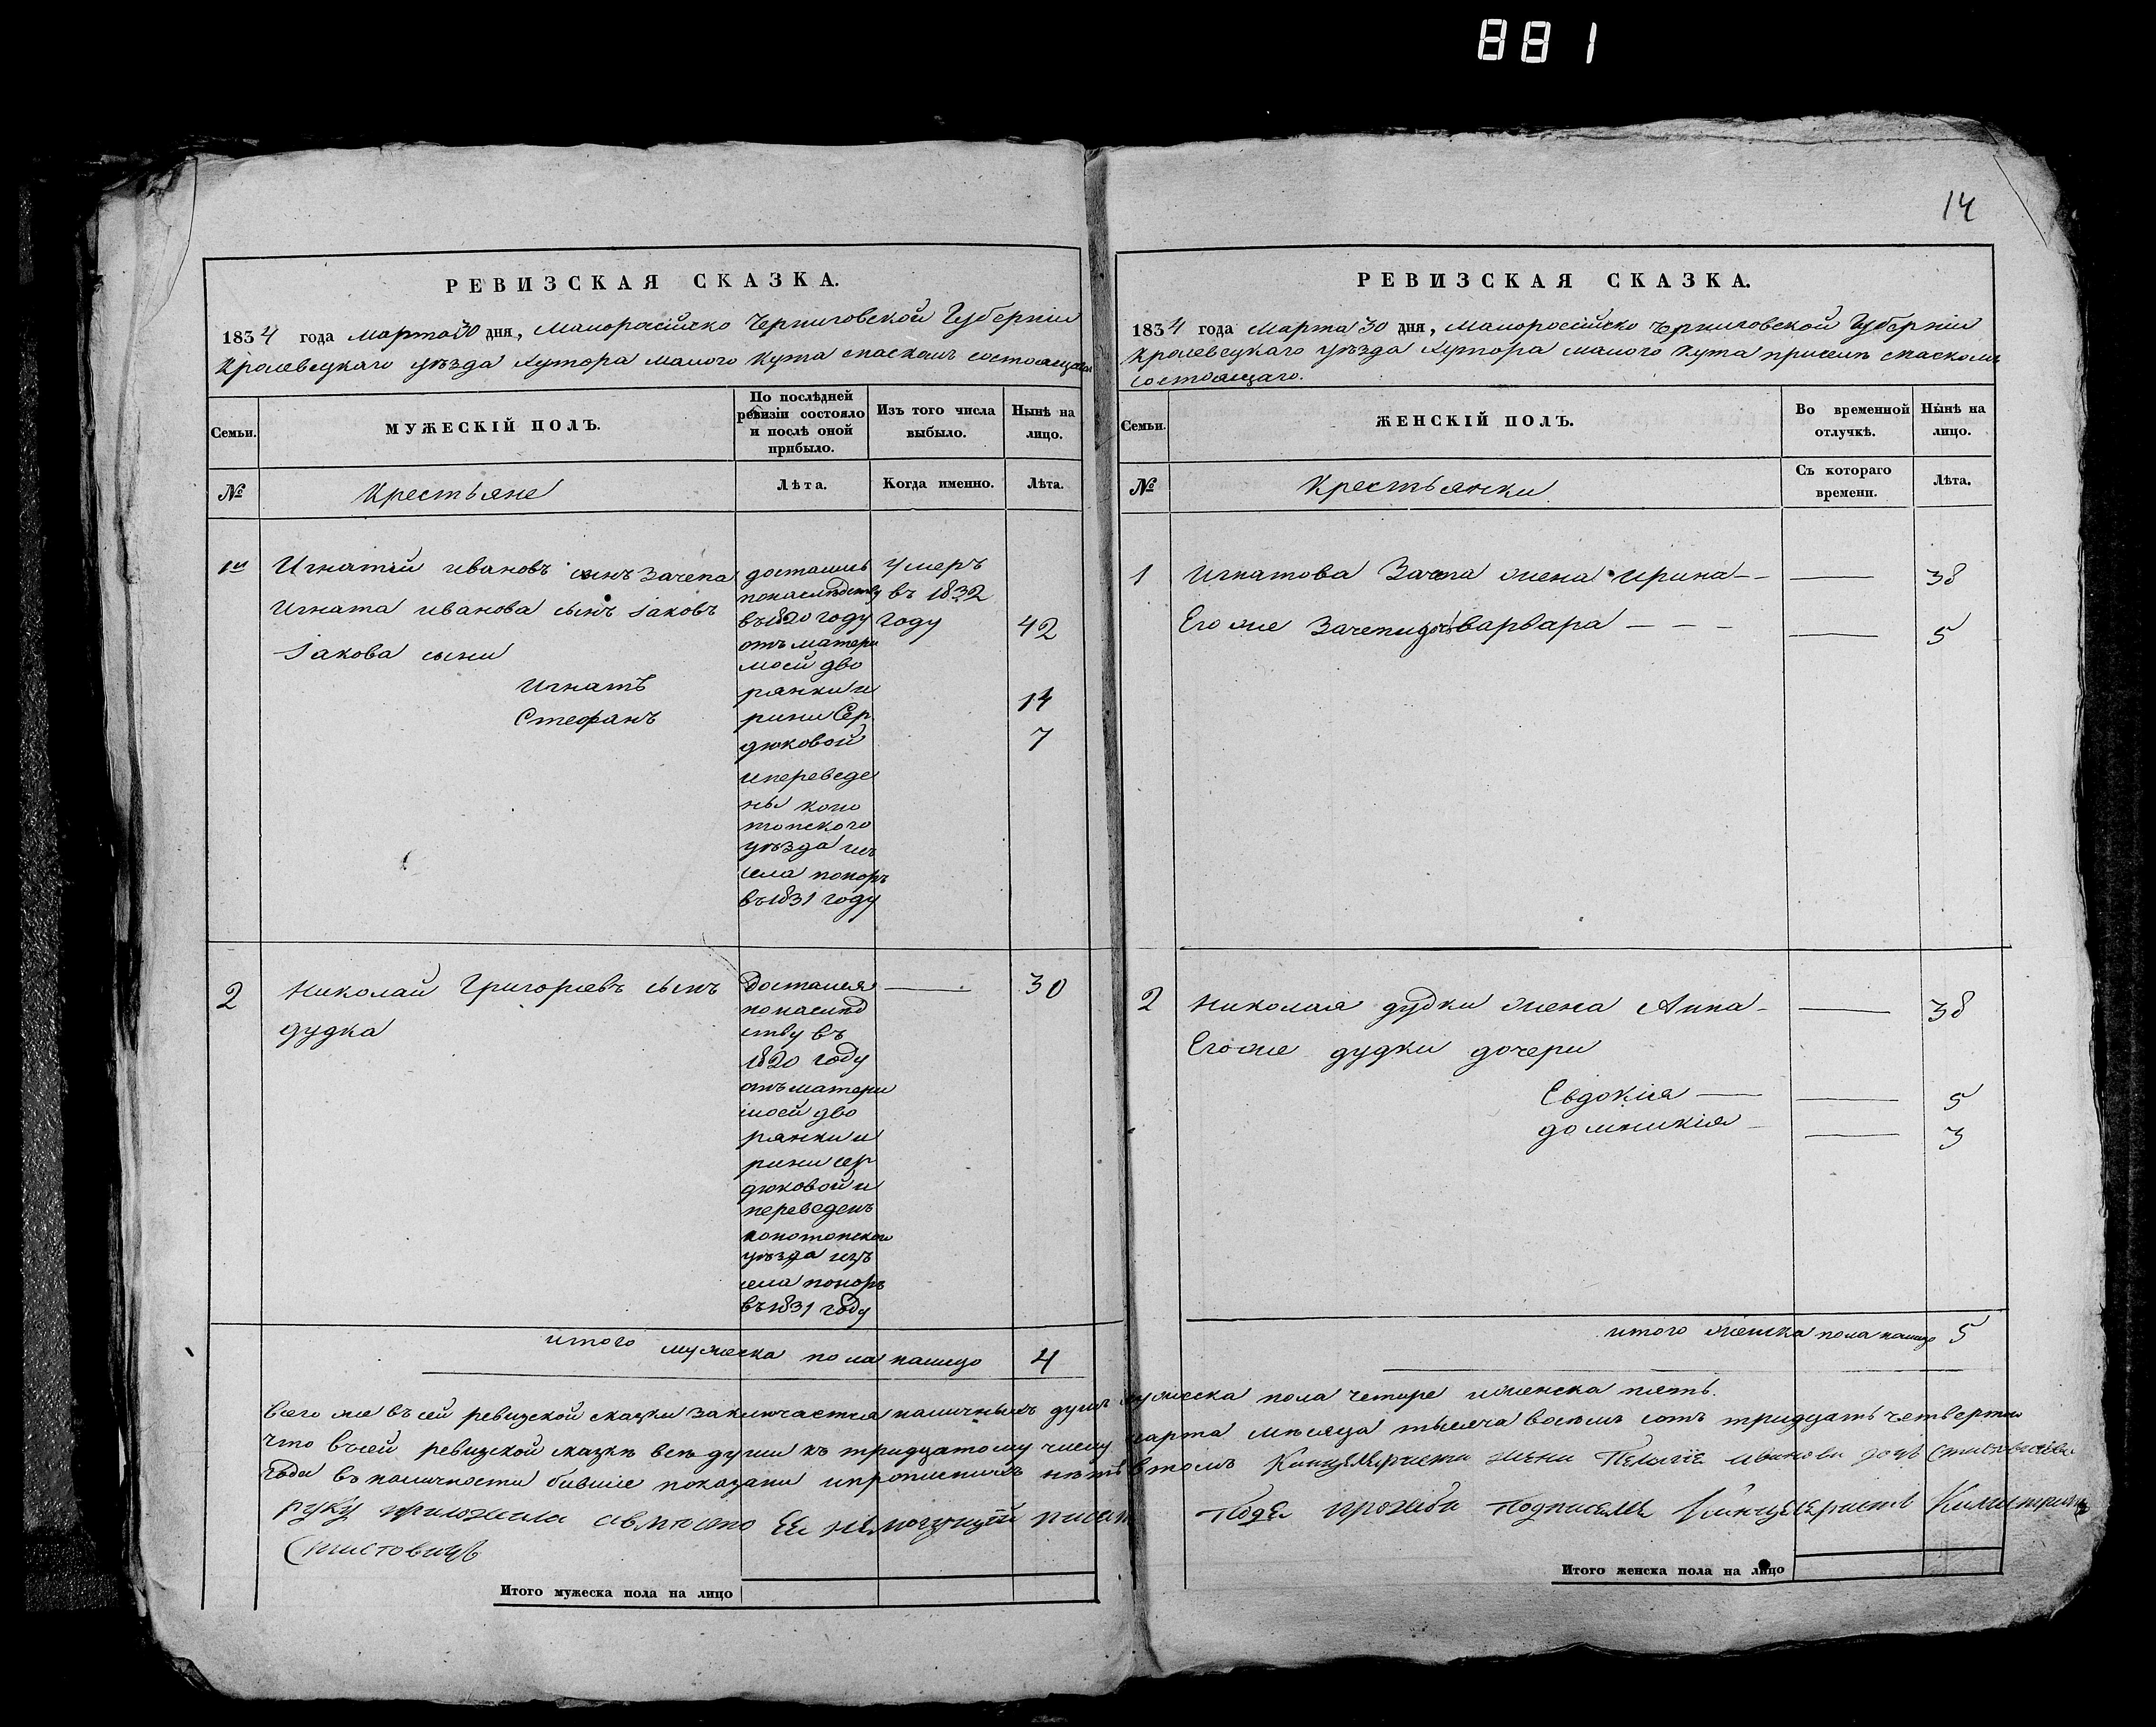 881
14
РЕВИЗСКАЯ СКАЗКА.
1834 года Марта 30 дня, Малоросійско Черниговской Губерніи
Кролевецкаго уѣзда Хутора малого Кута спаскомъ состоящаго
Семьи.
МУЖЕСКІЙ ПОЛЪ.
По послѣдней ревизіи состояло и послѣ оной прибыло.
Изъ того числа выбыло.
Нынѣ на лицо.
№
Крестьяне
Лѣта.
Когда именно.
Лѣта.
1й
Игнатий ивановъ сынъ Зачепа
Игната иванова сынъ Іаковъ
42
Іакова сыни
Игнатъ
14
Стефанъ
7
достались
понаслѣдству
въ1820 году
отъ матери
моей дво
рянки и
рини Сер
дюковой
ипереведе
ны коно
топского
уѣзда изъ
села попоръ
въ1831 году
Умеръ
въ 1832
году
2
Николай Григориевъ сынъ
30
дудка
Достался
понаслѣд
ству въ
1820 году
отъ матери
моей дво
рянки и
рини сер
дюковой и
переведенъ
конотопского
уѣзда изъ
села попоръ
въ1831 году
итого мужеска пола налицо
4
РЕВИЗСКАЯ СКАЗКА.
1834 года Марта 30 дня, Малоросійско Черниговской Губерніи
Кролевецкаго уѣзда Хутора малого Кута приселѣ спаскомъ
состоящаго.
Семьи.
ЖЕНСКІЙ ПОЛЪ.
Во временной отлучкѣ.
Нынѣ на лицо.
№
Крестьянки
Съ котораго времени.
Лѣта.
1
Игнатова Зачепа жена ирина
38
Его же Зачепи дочь варвара
5
2
Николая дудки жена Анна
38
Егоже дудки дочери
Евдокія
5
домникія
3
итого женска пола налицо
5
Всего же въ сей ревизской сказки заключается наличныхъ душъ мужеска пола четире иженска пять.
Что въсей ревизской сказкѣ всѣ души къ тридцатому числу марта мѣсяца тысяча восемъ сотъ тридцать четвертого
года въ наличности бившіе показани ипрописнихъ нѣтъ втомъ Канцеляриста жена Пелагіе иванова дочь
руку приложила авмѣсто Ея немогущей писать Подѣ прозби Подписался Канцеляристъ
Итого мужеска пола на лицо
Итого женска пола на лицо